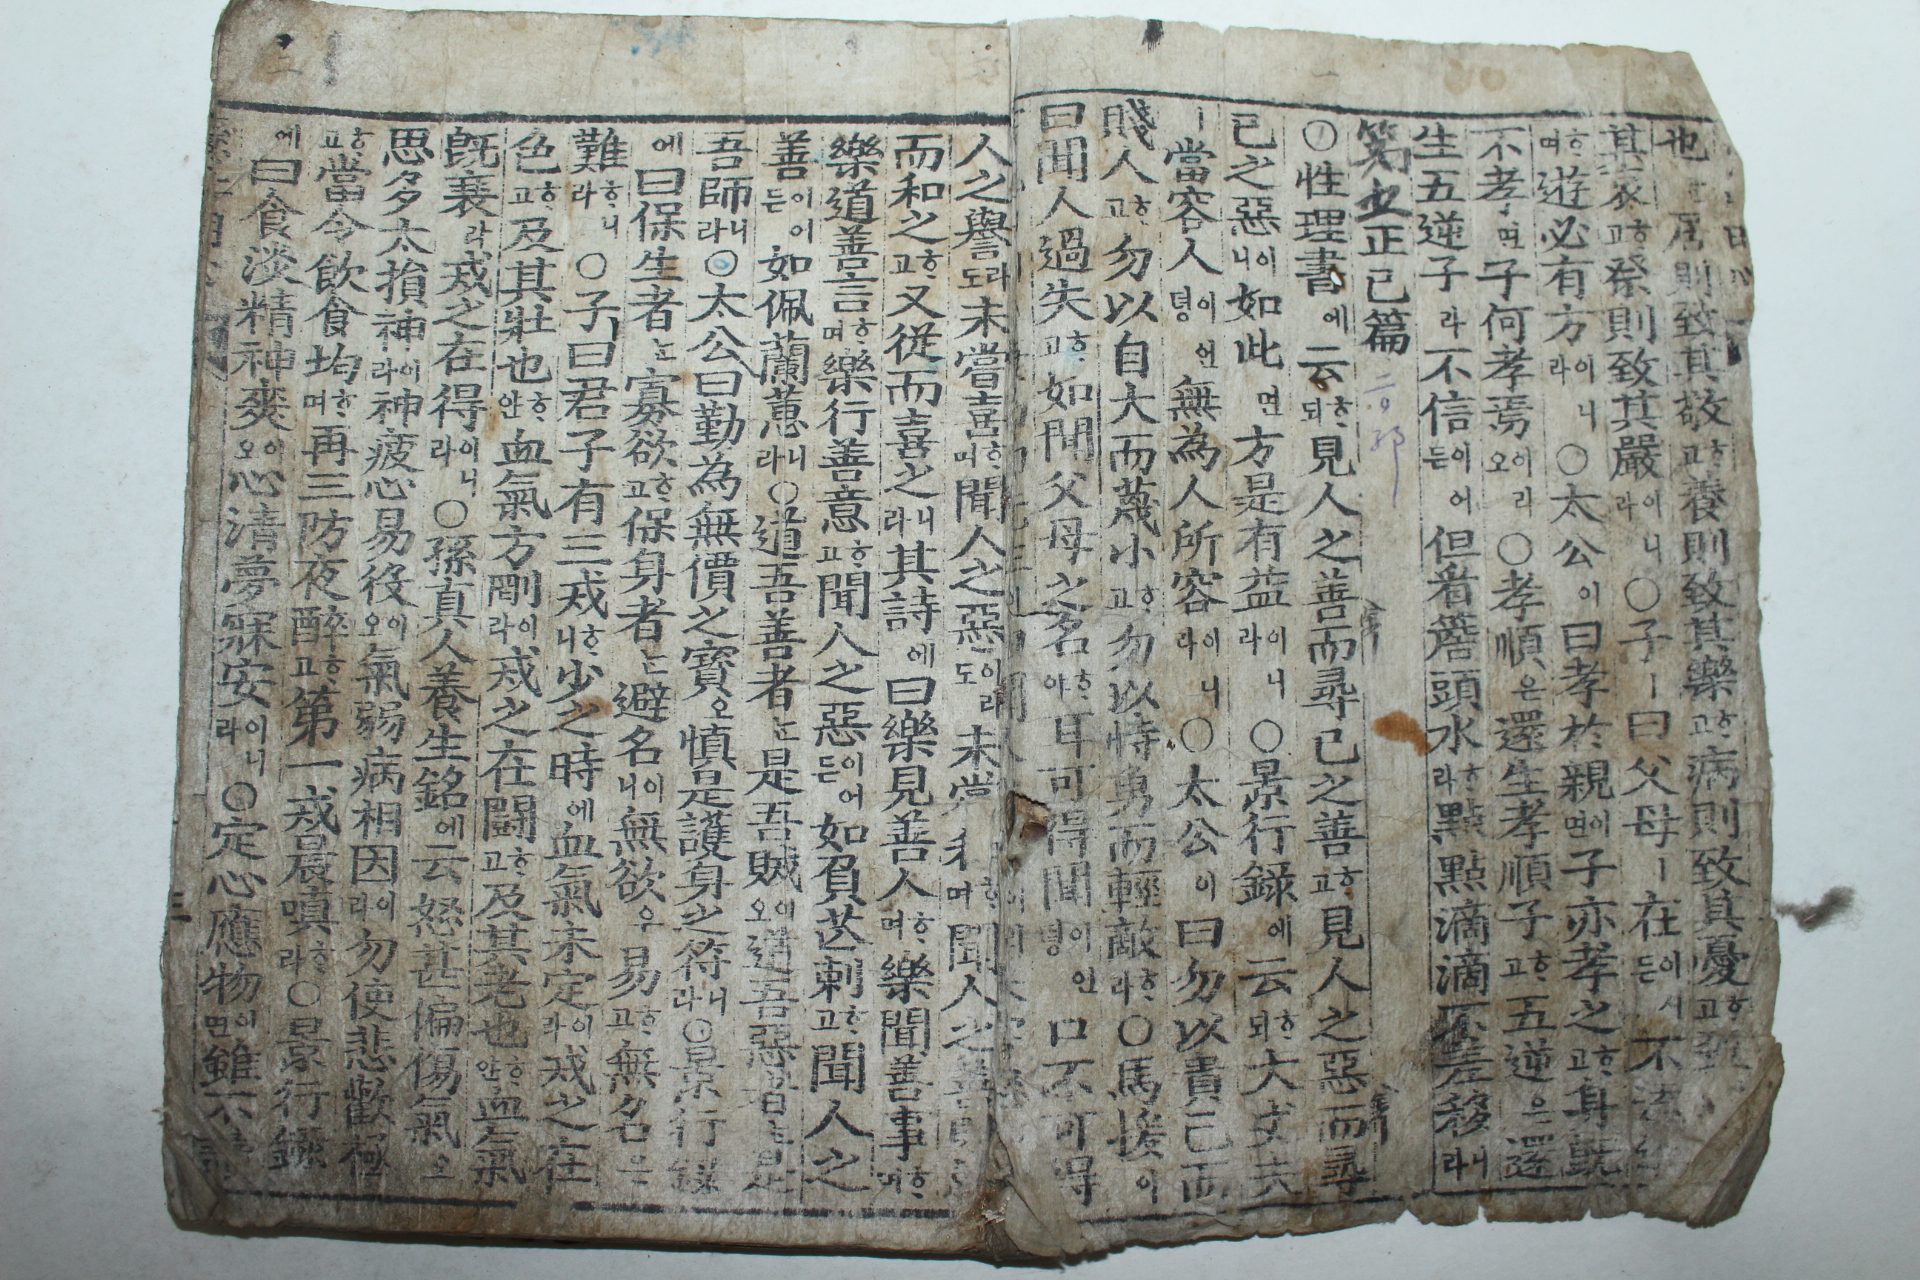 也ᄒᆞ居則致其敬고ᄒᆞ養則致其樂고ᄒᆞ病則致其憂고ᄒᆞ
其哀고ᄒᆞ祭則致其嚴이니라○子ㅣ曰父母ㅣ在이시든不
며ᄒᆞ遊必有方이니라○太公이曰孝於親이면子亦孝之고ᄒᆞ身旣
不孝면子何孝焉이리오○孝順은還生孝順子고ᄒᆞ五逆은還
生五逆子라不信이어든但看簷頭水라ᄒᆞ點點滴滴不差移니라
第五正己篇
○性理書에云되ᄒᆞ見人之善而尋己之善고ᄒᆞ見人之惡而尋
己之惡이니如此면方是有益이니라○景行錄에云되ᄒᆞ大丈夫
ㅣ當容人이언뎡無為人所容이니라○太公이曰勿以貴己而
賤人고ᄒᆞ勿以自大而蔑小고ᄒᆞ勿以恃勇而輕敵라ᄒᆞ○馬援이
曰聞人過失고ᄒᆞ如聞父母之名야ᄒᆞ耳可得聞이언뎡口不可得
人之譽라도未嘗喜며ᄒᆞ聞人之惡이라도未嘗和며ᄒᆞ聞人之善則
而和之고ᄒᆞ又從而喜之니라其詩에曰樂見善人며ᄒᆞ樂聞善事며ᄒᆞ
樂道善言며ᄒᆞ樂行善意고ᄒᆞ聞人之惡이어든如負芒刺고ᄒᆞ聞人之
善이어든如佩蘭蕙니라○道吾善者ᄂᆞᆫ是吾賊이오道吾惡者ᄂᆞᆫ是
吾師니라○太公曰勤為無價之寶오愼是護身之符니라○景行錄
에曰保生者ᄂᆞᆫ寡欲고ᄒᆞ保身者ᄂᆞᆫ避名이니無欲우易고ᄒᆞ無名은
難ᄒᆞ니라○子ㅣ曰君子有三戒ᄒᆞ니少之時에血氣未定이라戒之在
色고ᄒᆞ及其壯也안ᄒᆞ血氣方剛이라戒之在鬪고ᄒᆞ及其老也안ᄒᆞ血氣
旣衰라戒之在得이니라○孫眞人養生銘에云怒甚偏傷氣오
思多太損神이라神疲心易役이오氣弱病相因이라勿使悲歡極
고ᄒᆞ當令飮食均며ᄒᆞ再三防夜醉고ᄒᆞ第一戒晨嗔라ᄒᆞ○景行錄
에曰食淡精神爽이오心淸夢寐安이니라○定心應物이면雖不